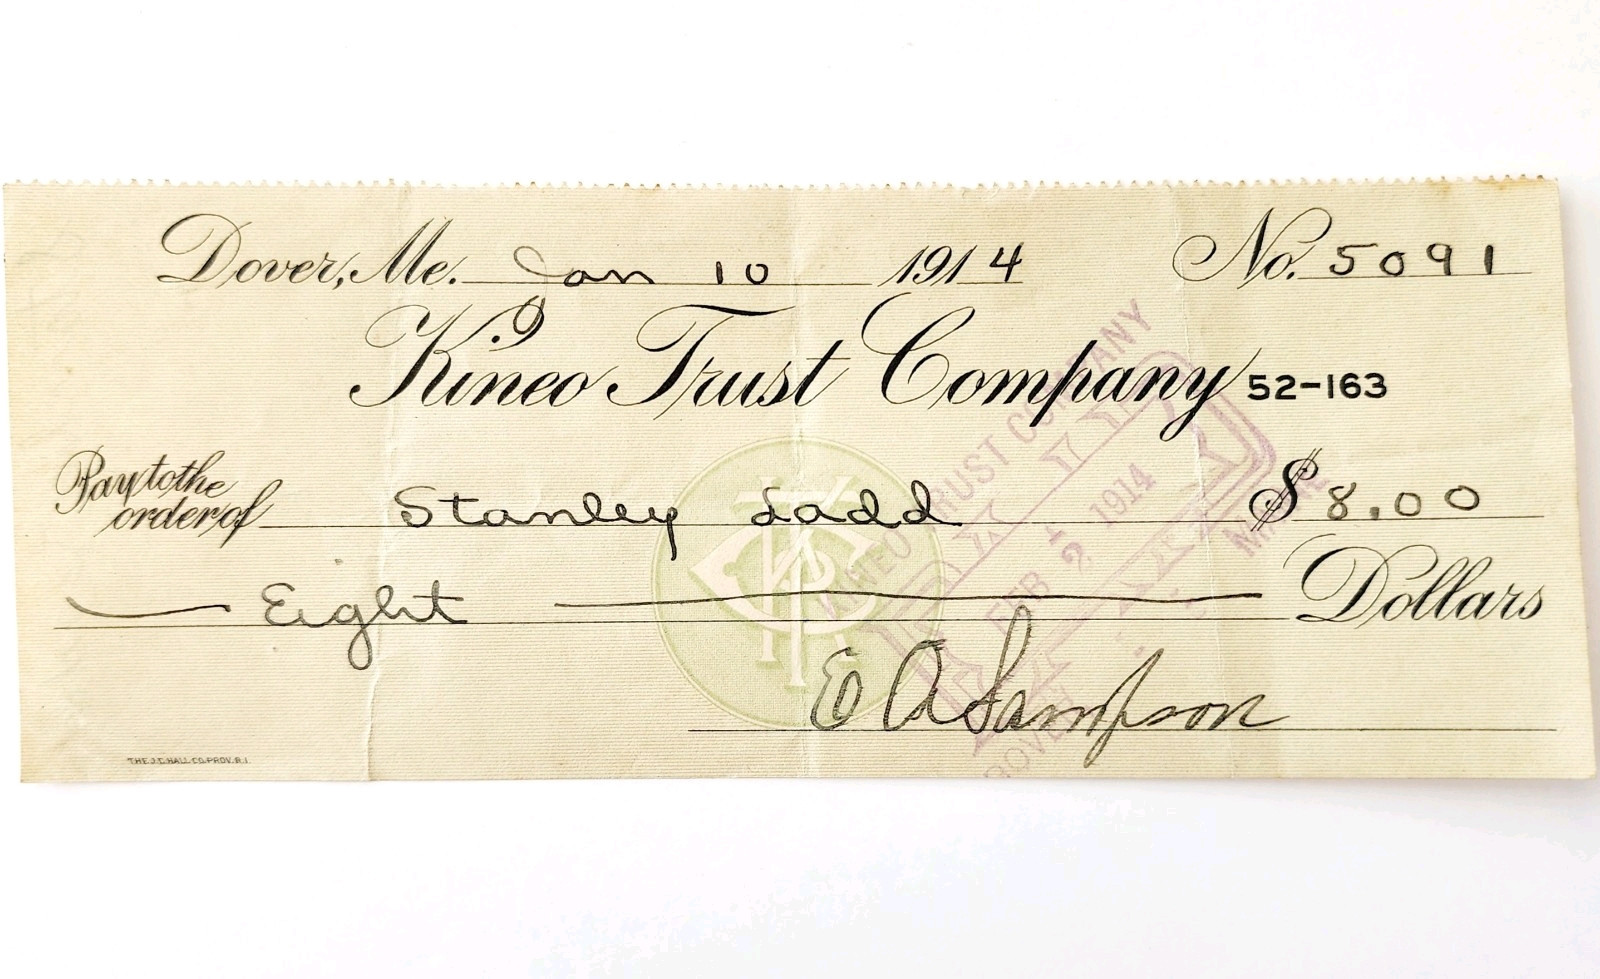 Dover, Me. Jan 10 1914 No. 5091
Kineo Trust Company 52-163
Pay to the
order of Stanley Ladd $ 8.00
Eight Dollars
E A Sampson
THE J.C. HALL CO. PROV. R.I.
KTC
KINEO TRUST COMPANY
PAID
FEB 2 1914
DOVER MAINE